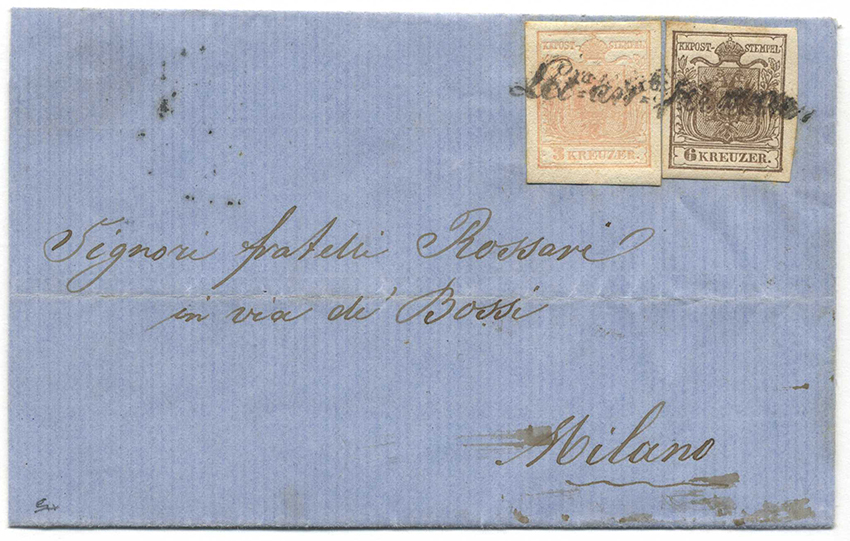 KKPOST-STEMPEL
3 KREUZER.
KKPOST-STEMPEL
6 KREUZER.
Signori fratelli Rossari
in via de' Bossi
Milano